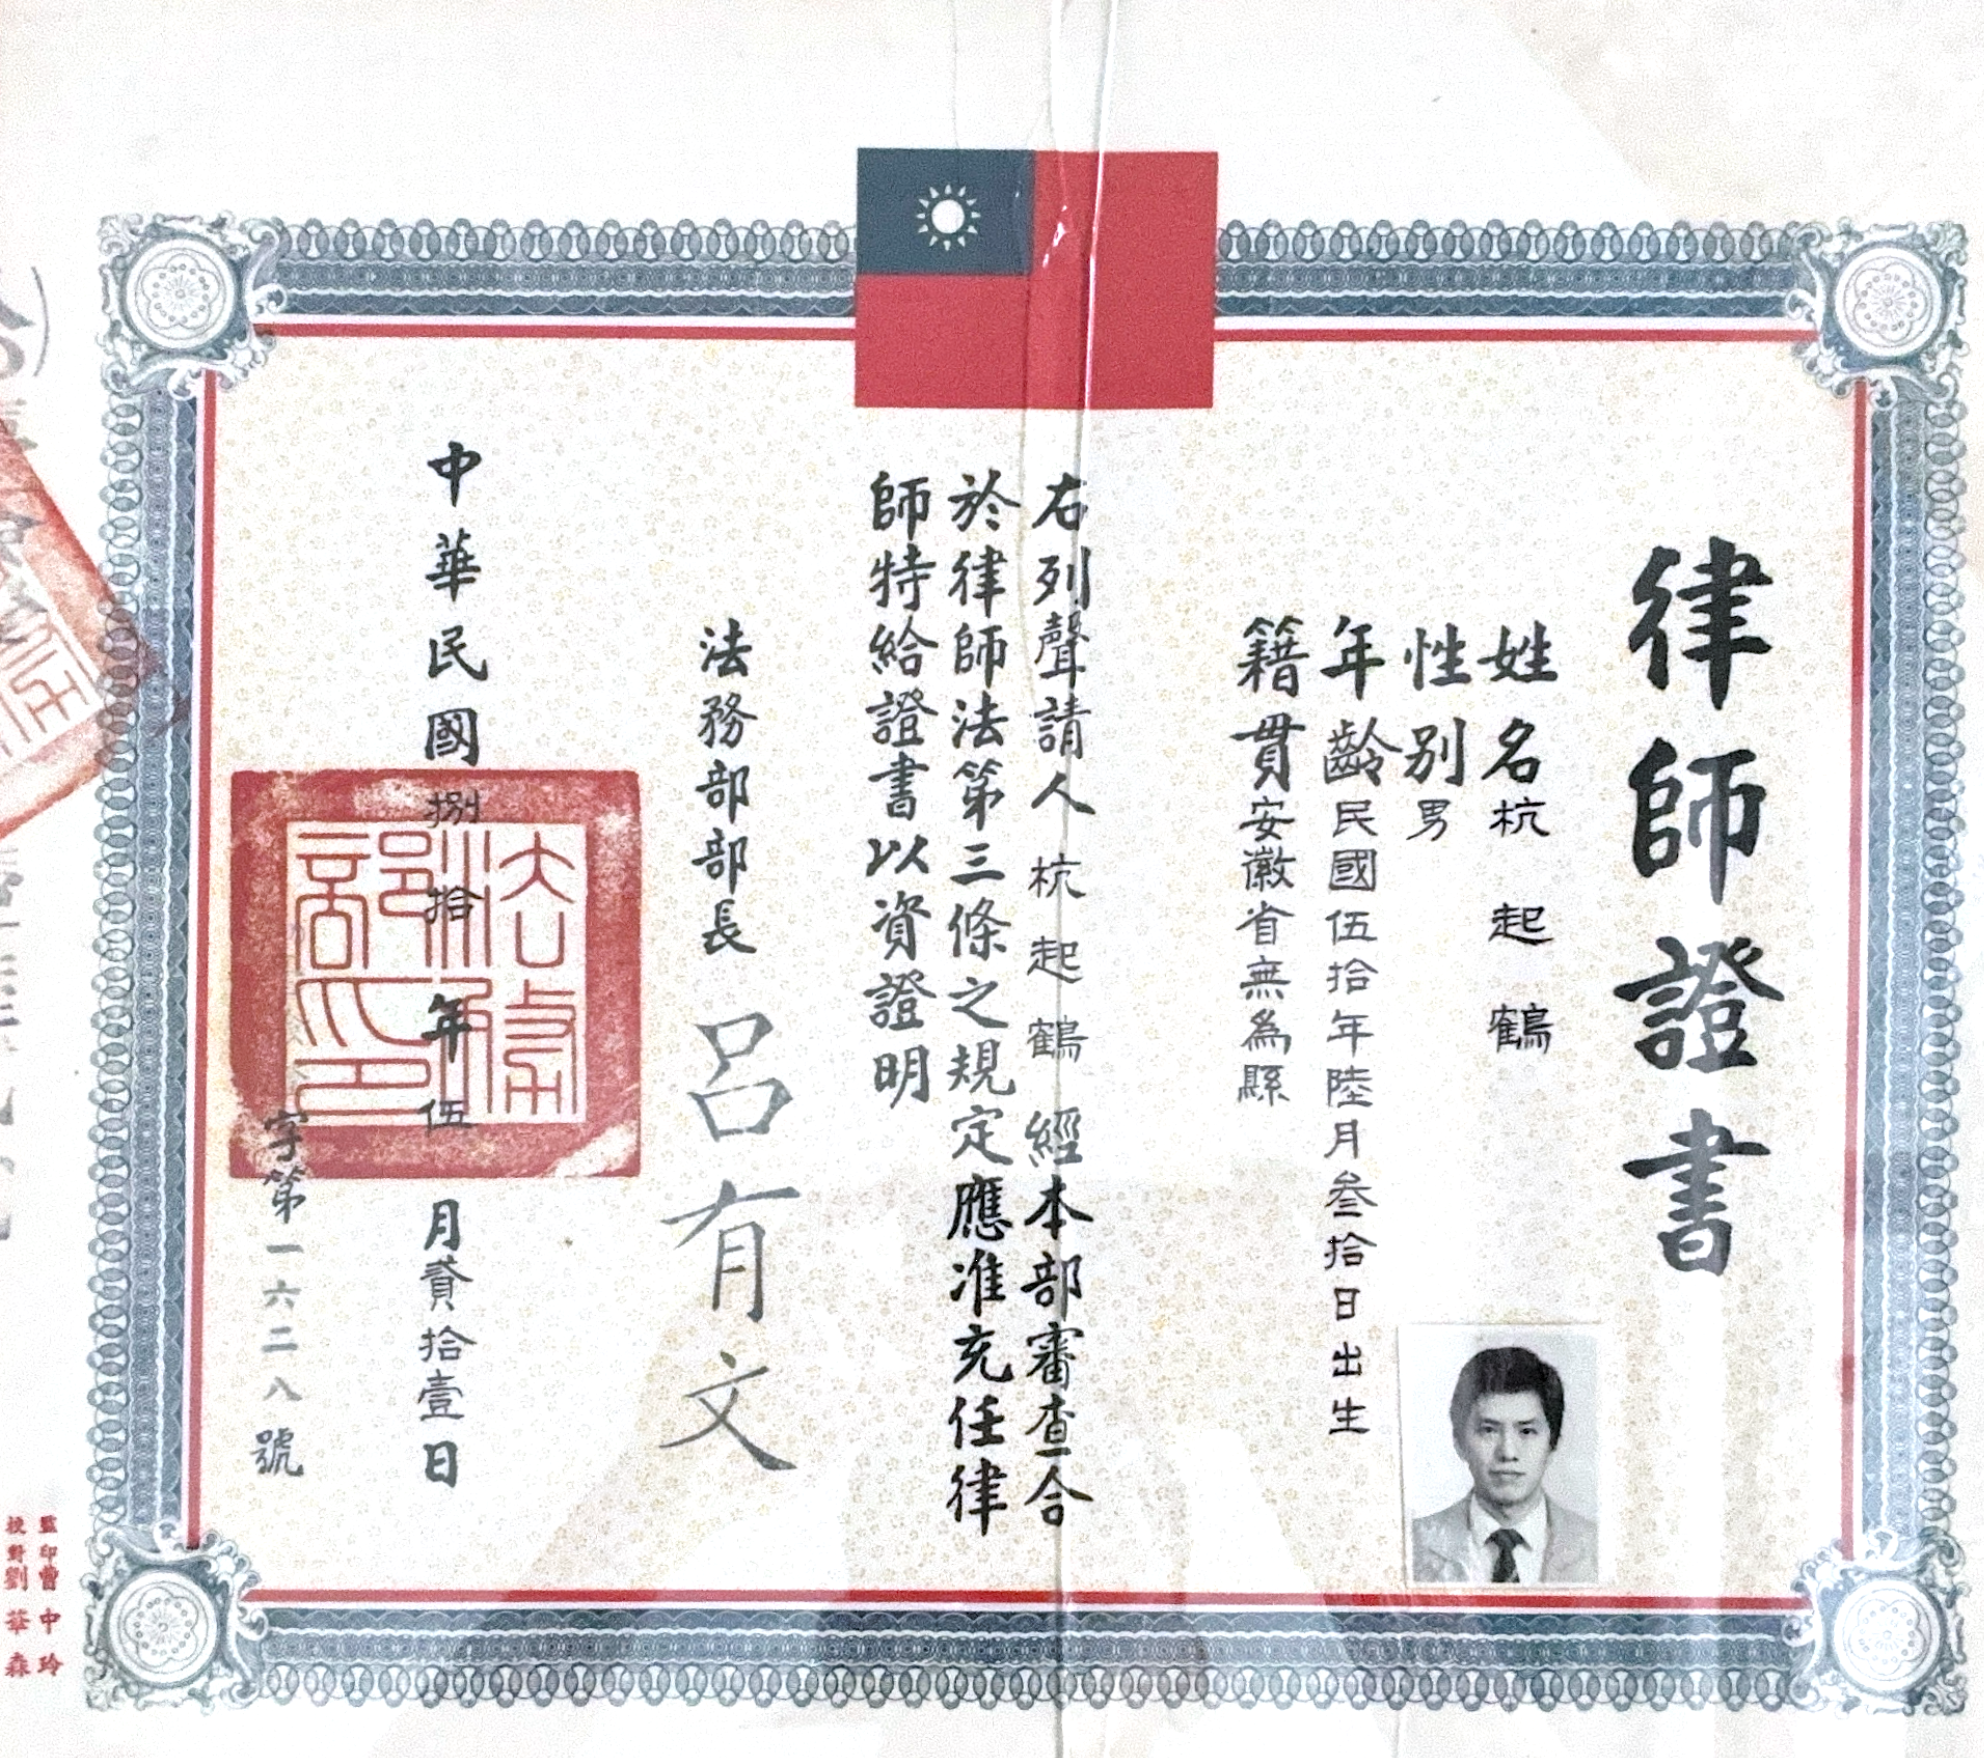 律師證書
姓名杭起鶴
性別男
年齡民國伍拾年陸月叁拾日出生
籍貫安徽省無為縣
右列聲請人杭起鶴經本部審查合
於律師法第三條之規定應准充任律
師特給證書以資證明
法務部部長呂有文
法務部印
中華民國捌拾年伍月貳拾壹日
字第一六二八號
監印曹中玲
校對劉華森